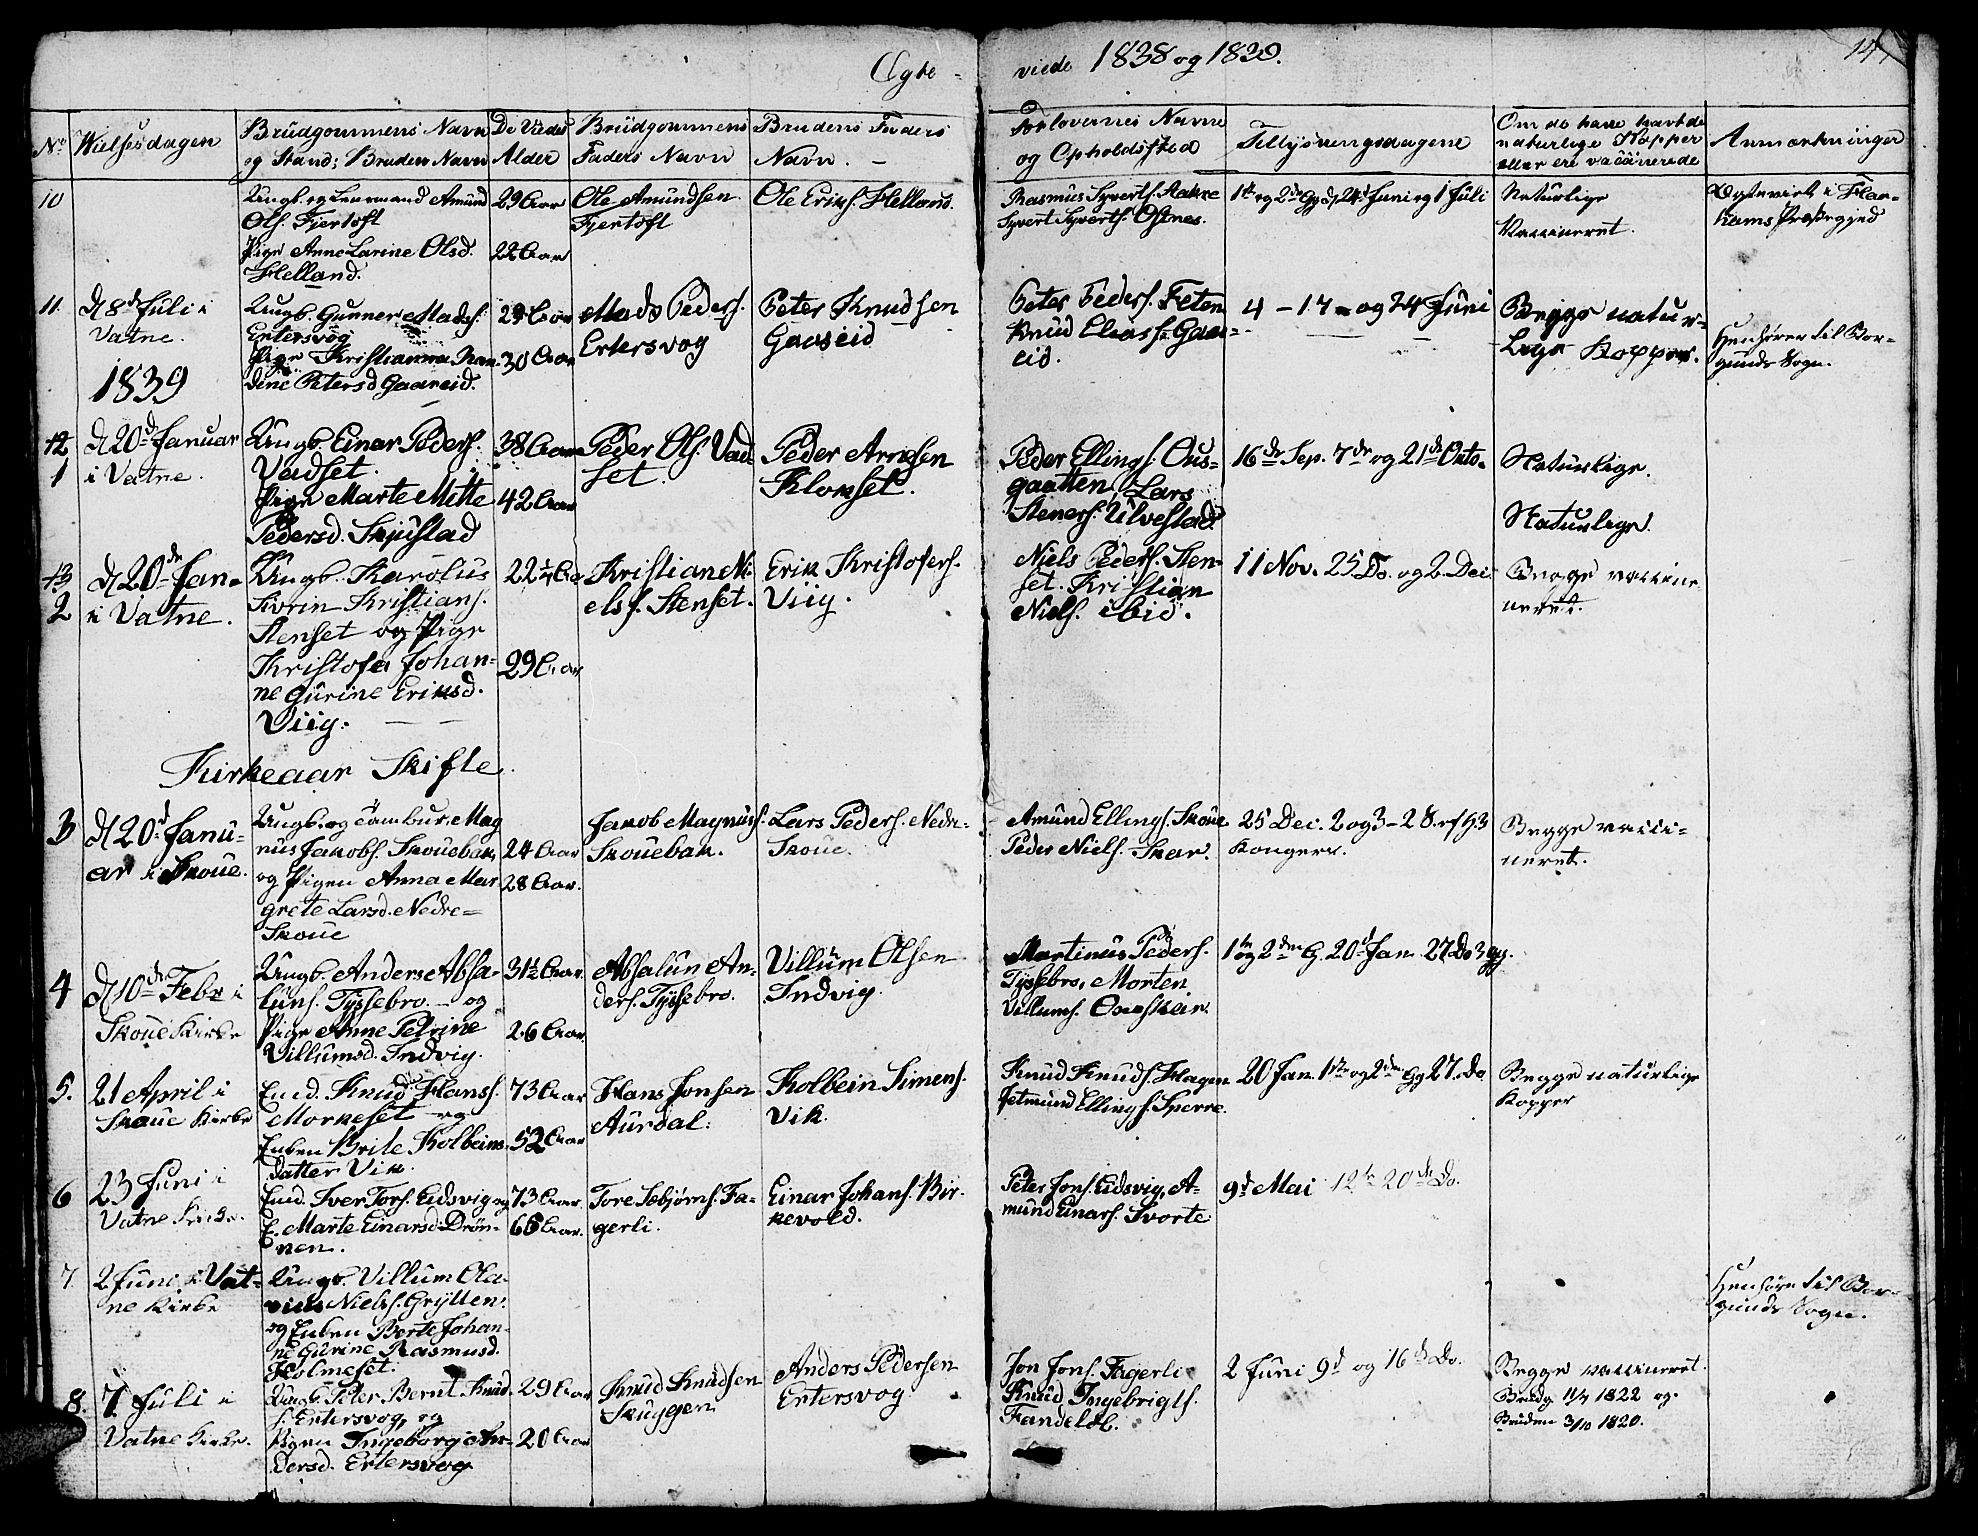 Ægte - viede 1838 og 1839.
No Vielsesdagen
Brudgommens Navn og Stand; Brudens Navn
De Viedes Alder
Brudgommens Faders Navn
Brudens Faders Navn. -
Forlovernes Navne og Opholdssted
Tillysningsdagene
Om de have havt de naturlige Kopper eller ere vaccinerede
Anmærkninger
10
Ungk. og Amund
Ols. Fjertoft
Pige Anne Larine Olsd.
Helland.
29 Aar
22 Aar
Ole Amundsen
Fjertoft
Ole Eriks. Helland.
Rasmus Syverts. Aakre
Syvert Syverts. Ostnes.
1ste og 2den Gg d. 24d Juni og 1 Juli
Naturlige
Vaccineret.
Ægteviet i Har-
hams Præstegjed
11.
d 8de Juli i
Vatne.
Ungk. Gunner Mads.
Ertersvog
Pige Kristianna Ran-
dine Petersd Gaaseid.
29 Aar
30 Aar
Mads Peders.
Ertersvog
Peter Knudsen
Gaaseid
Peter Peders. Feten
Knud Eliass. Gaas-
eid.
4 - 17 - og 24 Juni
Begge natur-
lige Kopper.
Henhører til Bor-
gunds Sogn.
1839
12
1
d 20d Januar
i Vatne.
Ungk. Einar Peders.
Vadset.
Pige Marte Mitte
Pedersd. Skjelstad
38 Aar
42 Aar
Peder Ols. Vad-
set.
Peder Arnesen
Klokset.
Peder Ellings. Ous-
gaatten, Lars
Steners. Ulvestad
16de Sep. 7de og 21de Okto.
Naturlige.
Naturlige.
13
2
d 20de Jan-
i Vatne.
Ungk. Karolus
Sivrin Kristians.
Stenset og Pige
Kristofa Johan-
ne Gurine Eriksd.
Viig.
22 Aar
29 Aar
Kristian Ni-
els s. Stenset.
Erik Kristofers.
Viig.
Niels Peders. Sten-
set. Kristian
Niels. ibid.
11 Nov. 25 Do. og 2. Dec.
Begge vaccine-
neret.
Kirkeaar Skifte.
3
d 20d Janu-
ar i Skoue.
Ungk. og Mag
nus Jakobs. Skouebak,
og Pigen Anna Mar
grete Larsd. Nedre-
Skoue
24 Aar
28 Aar.
Jakob Magnuss.
Skouebak.
Lars Peders. Nedre-
Skoue.
Amund Ellings. Skoue
Peder Niels. Skar.
25 Dec. 2 og 3 - 28.
Begge vacci-
neret.
4
d 10de Febr i
Skoue Kirke
Ungk. Anders Absa-
luns. Tyssebro. og
Pige Anne Petrine
Villumsd. Indvig.
31½ Aar.
26 Aar
Absalun An-
ders. Tyssebro.
Villum Olsen
Indvig.
Martinus Peders.
Tyssebro, Morten
Villums.
1ste og 2den G. 20d Jan. 27 Do 3 gg.
5.
21 April i
Skoue Kirke
Enkd. Knud Hanss.
Morkeset og
Enken Brite Kolbeins-
datter Vik.
73 Aar
52 Aar
Hans Jonsen
Aurdal.
Kolbein Simens.
Vik.
Knud Knuds. Hagen
Jetmund Ellings. Sperre.
20 Jan. 1ste og 2den Gg 27. do
Begge naturlige
Kopper
6
23 Juni i
Vatne Kirke.
Enkd. Iver Tors. Eidsvig og
E. Marte Einarsd. Drøn-
nen.
73 Aar
65 Aar.
Tore Sebjørns. Fa-
gerli.
Einar Johans. Bir-
kevold.
Peter Jons. Eidsvig, A-
mund Einars. Svorte
9d Mai 12te 20de Do.
7
2 Juni i Vat-
ne Kirke
Ungk. Villum Ola-
vius Niels. Grytten.
og Enken Berte Johan-
ne Gurine Rasmusd.
Holmeset.
Henhører til Bor-
gunds Sogn.
8.
7 Juli i
Vatne Kirke.
Ungk. Peter Bernt Knud-
s. Ertersvog, og
Pigen Ingeborg An-
dersd. Ertersvog
29 Aar
20 Aar
Knud Knudsen
Skuggen
Anders Pedersen
Ertersvog
Jon Jons. Fagerli
Knud Ingebrigts.
2 Juni 9d og 16de Do.
Begge vaccineret.
Brudg. 11/7 1822 og
Bruden 3/10 1820.